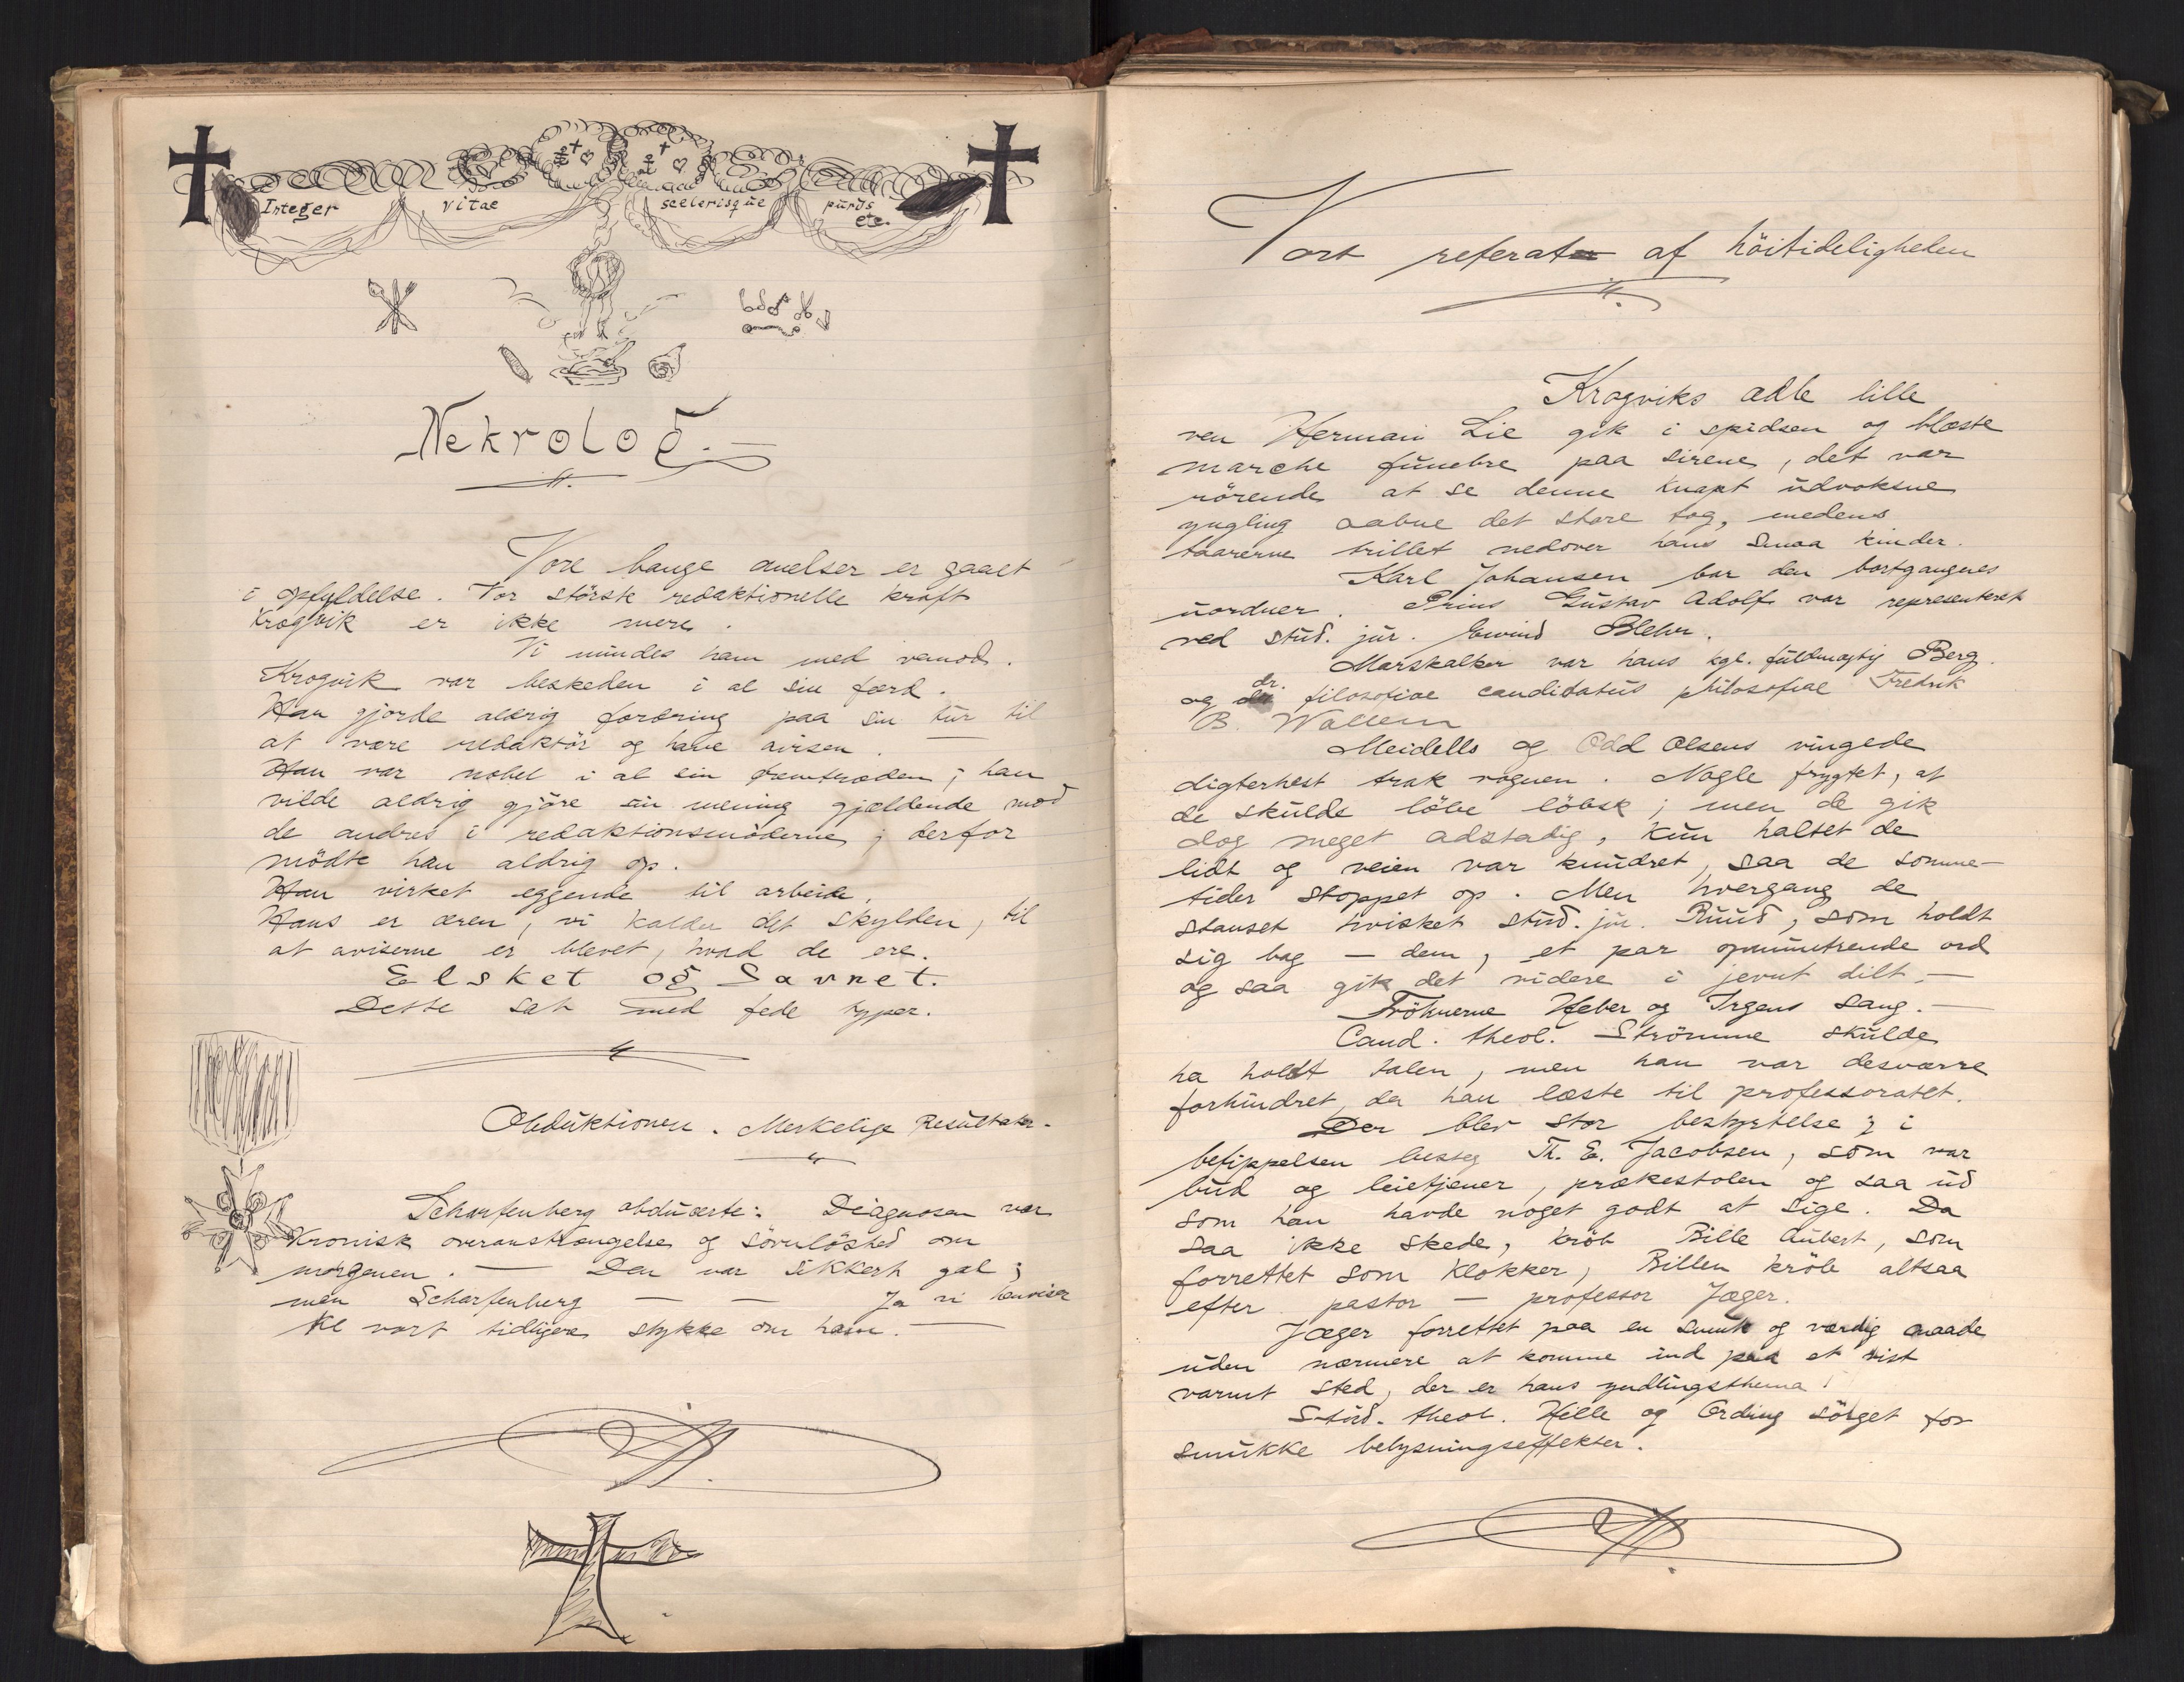 Integer vitae scelerisque purus
etc.
Nekrolog.
Vore bange anelser er gaaet
i opfyldelse. Vor störste redaktionelle kraft
Krogvik er ikke mere.
Vi mindes ham med vemod.
Krogvik var beskeden i al sin færd.
Han gjorde aldrig fordring paa sin tur til
at være redaktör og have avisen.
Han var nobel i al sin fremtræden; han
vilde aldrig gjöre sin mening gjældende mod
de andres i redaktionsmöderne; derfor
mödte han aldrig op.
Han virket eggende til arbeide.
Hans er æren, vi kalder det skylden, til
at aviserne er blevet, hvad de ere.
Elsket og Savnet.
Dette sat med fede typer.
Obduktionen. Merkelige Resultater.
Scharfenberg obducerte: Diagnosen var
Kronisk overanstrængelse og sövnlöshed om
morgenen. — Den var sikkert gal;
men Scharfenberg — — Ja vi henviser
til vort tidligere stykke om ham. —
Vort referat af höitideligheden
Krogviks ædle lille
ven Herman Lie gik i spidsen og blæste
marche funebre paa sirene, det var
rörende at se denne knapt udvoksne
yngling aabne det store tog, medens
taarerne trillet nedover hans smaa kinder.
Karl Johansen bar den bortgangnes
uordner. Prins Gustav Adolf var representeret
ved stud. jur. Eivind Blehr.
Marskalker var hans kgl. fuldmægtig Berg.
og dr. filosofiae candidatus philosofiae Fredrik
B. Wallem
Meidells og Odd Olsens vingede
digterhest trak vognen. Nogle frygtet, at
de skulde löbe löbsk; men de gik
dog meget adstadig, kun haltet de
lidt og veien var knudret, saa de somme-
tider stoppet op. Men hvergang de
stanset hvisket stud. jur. Ruud, som holdt
sig bag — dem, et par opmuntrende ord
og saa gik det videre i jevnt dilt. —
Fröknerne Heber og Irgens sang. —
Cand. theol. Strömme skulde
ha holdt talen, men han var desværre
forhindret, da han læste til professoratet.
Der blev stor bestyrtelse; i
befippelsen besteg Th. E. Jacobsen, som var
bud og leietjener, prækestolen og saa ud
som han havde noget godt at sige. Da
saa ikke skede, kröb Bille Aubert, som
forrettet som Klokker, Billen kröb altsaa
efter pastor — professor Jæger.
Jæger forrettet paa en smuk og værdig maade
uden nærmere at komme ind paa et vist
varmt sted, der er hans yndlingsthema!
Stud. theol. Hille og Ording sörget for
smukke belysningseffekter.